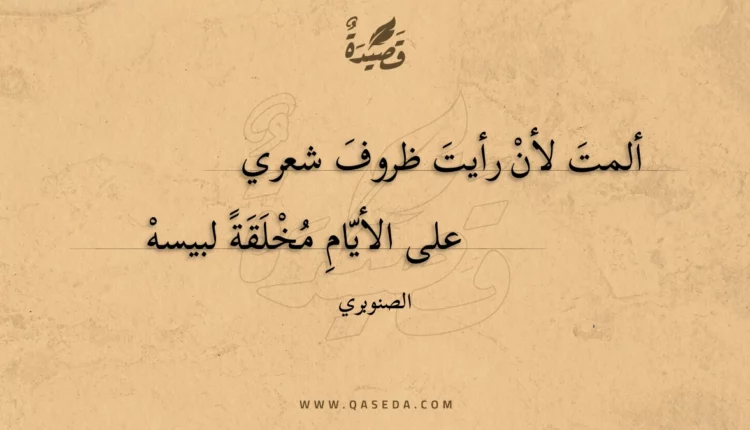 قَصِيْدَةٌ
ألمتَ لأنْ رأيتَ ظروفَ شعري
على الأيّامِ مُخْلَقَةً لبيسهْ
الصنوبري
WWW.QASEDA.COM